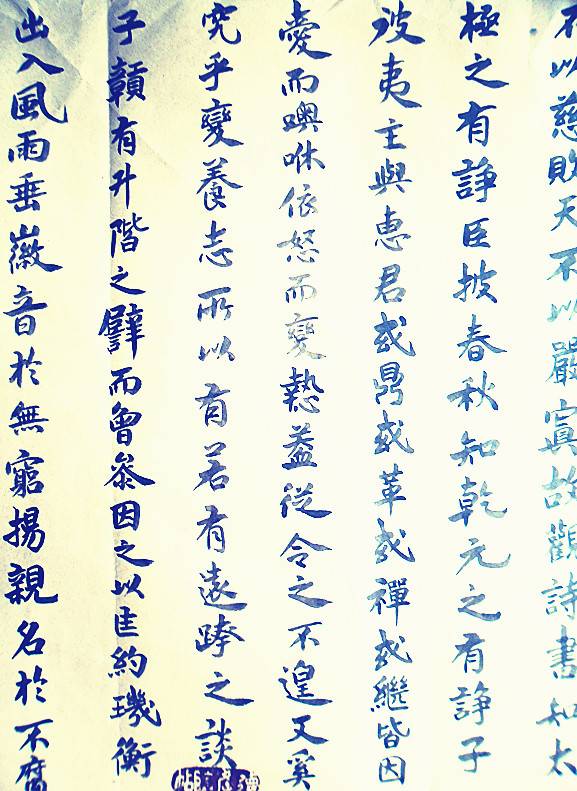 不以慈敗天不以嚴寘故觀詩書知太
極之有諍臣披春秋知乾元之有諍子
波夷主與惠君或鼎或革或禪或繼皆因
愛而噢咻依怒而變熱蓋從令之不遑又奚
究乎變養志所以有若有遠跨之談
子贛有升階之譬而曾參因之以匡約璣衡
出入風雨垂徽音於無窮揚親名於不腐